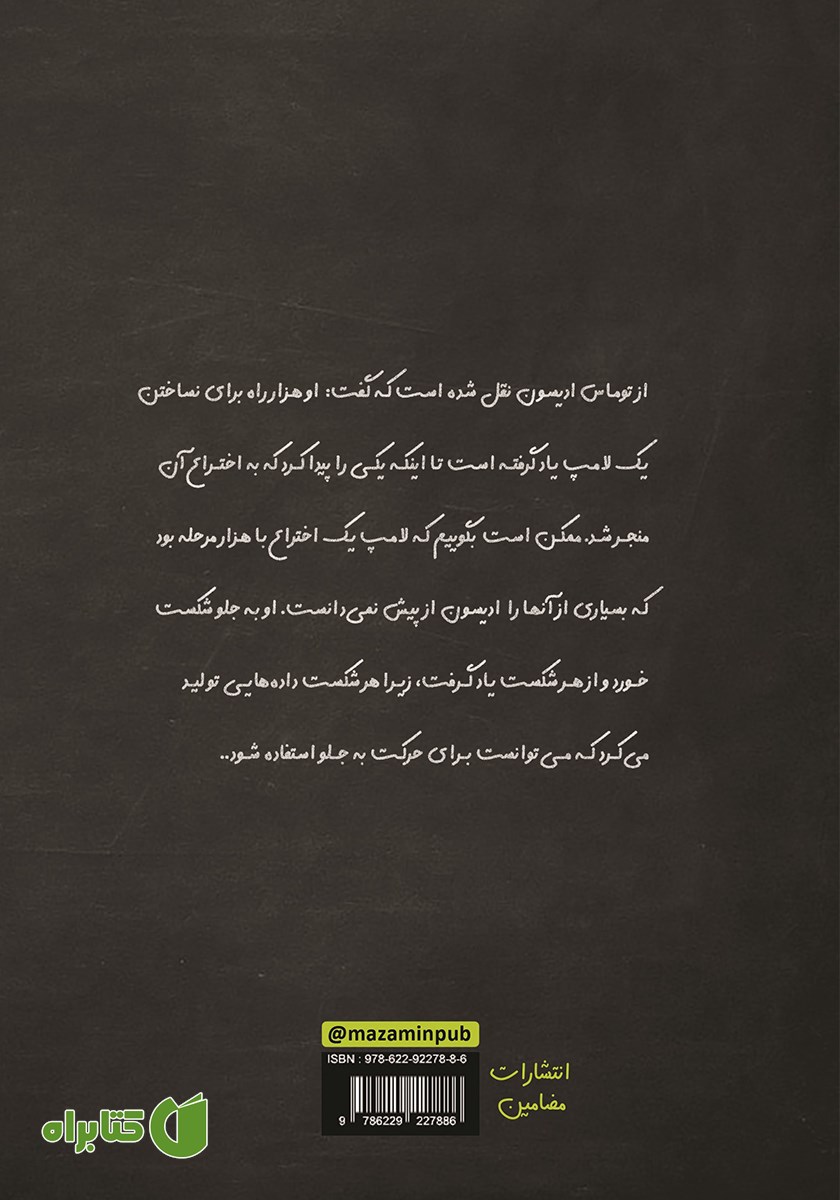 از توماس ادیسون نقل شده است که گفت: او هزار راه برای نساختن
یک لامپ یاد گرفته است تا اینکه یکی را پیدا کرد که به اختراع آن
منجر شد. ممکن است بگوییم که لامپ یک اختراع با هزار مرحله بود
که بسیاری از آنها را ادیسون از پیش نمی‌دانست. او به جلو شکست
خورد و از هر شکست یاد گرفت، زیرا هر شکست داده‌هایی تولید
می‌کرد که می‌توانست برای حرکت به جلو استفاده شود..
@mazaminpub
ISBN : 978-622-92278-8-6
9 786229 227886
انتشارات
مضامین
کتابراه